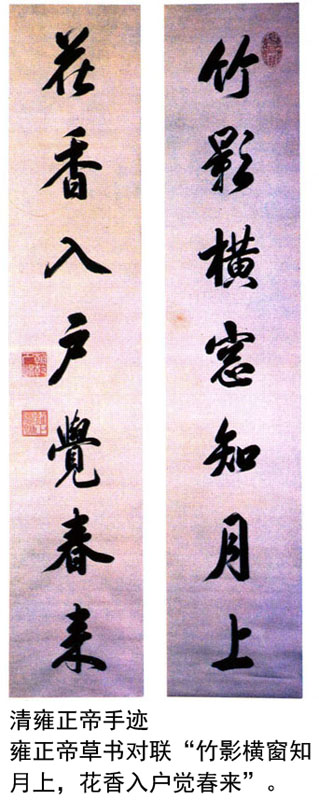 竹影橫窓知月上
花香入戶覺春来
清雍正帝手迹
雍正帝草书对联“竹影横窗知
月上，花香入户觉春来”。